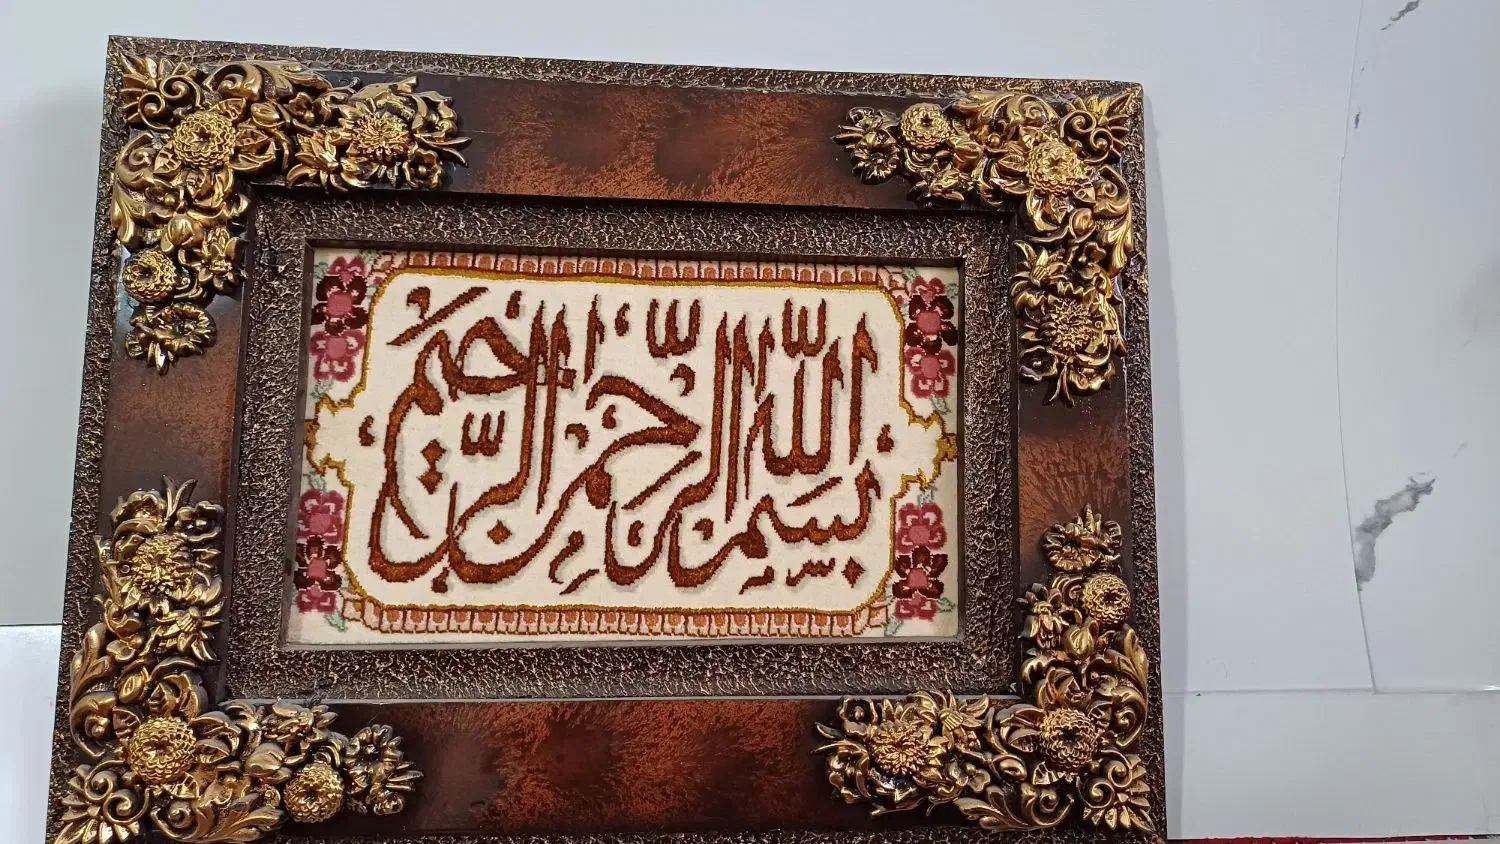 بِسْمِ اللّٰهِ الرَّحْمٰنِ الرَّحِیمِ